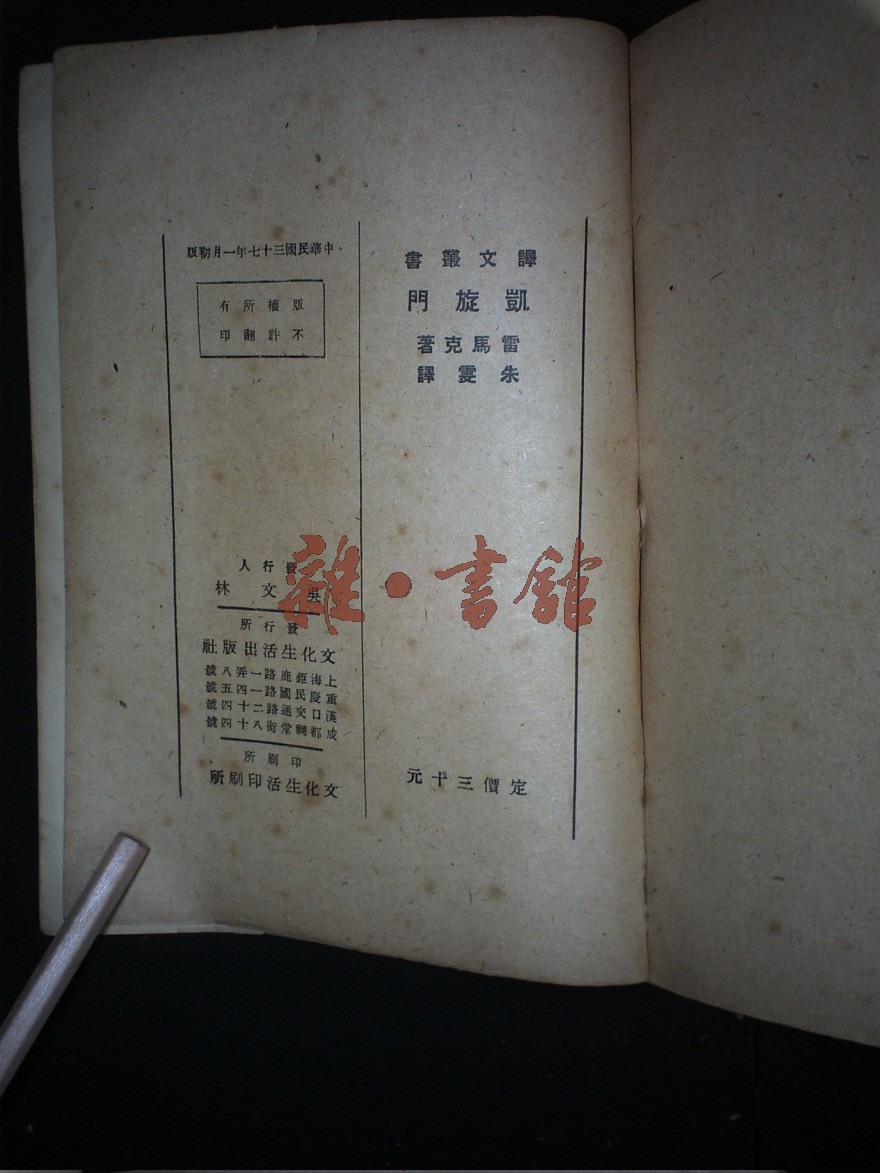 譯文叢書
凱旋門
雷馬克著
朱雯譯
定價三十元
中華民國三十七年一月初版
版權所有
不許翻印
發行人
吳文林
發行所
文化生活出版社
上海鉅鹿路一弄八號
重慶民國路一四五號
漢口交通路二十四號
成都祠堂街八十四號
印刷所
文化生活印刷所
雜·書館